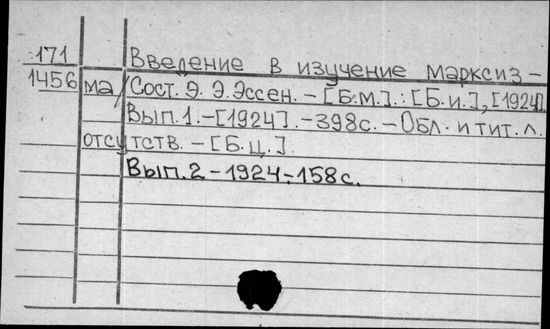 171 Введение в изучение марксиз-
1456 ма/Сост. Э. Э. Эссен. - [Б.м.]. : [Б.и.], [1924].
Вып. 1. - [1924]. - 398с. - Обл. и тит. л.
отсутств. - [Б.ц.].
Вып. 2 - 1924. - 158с.